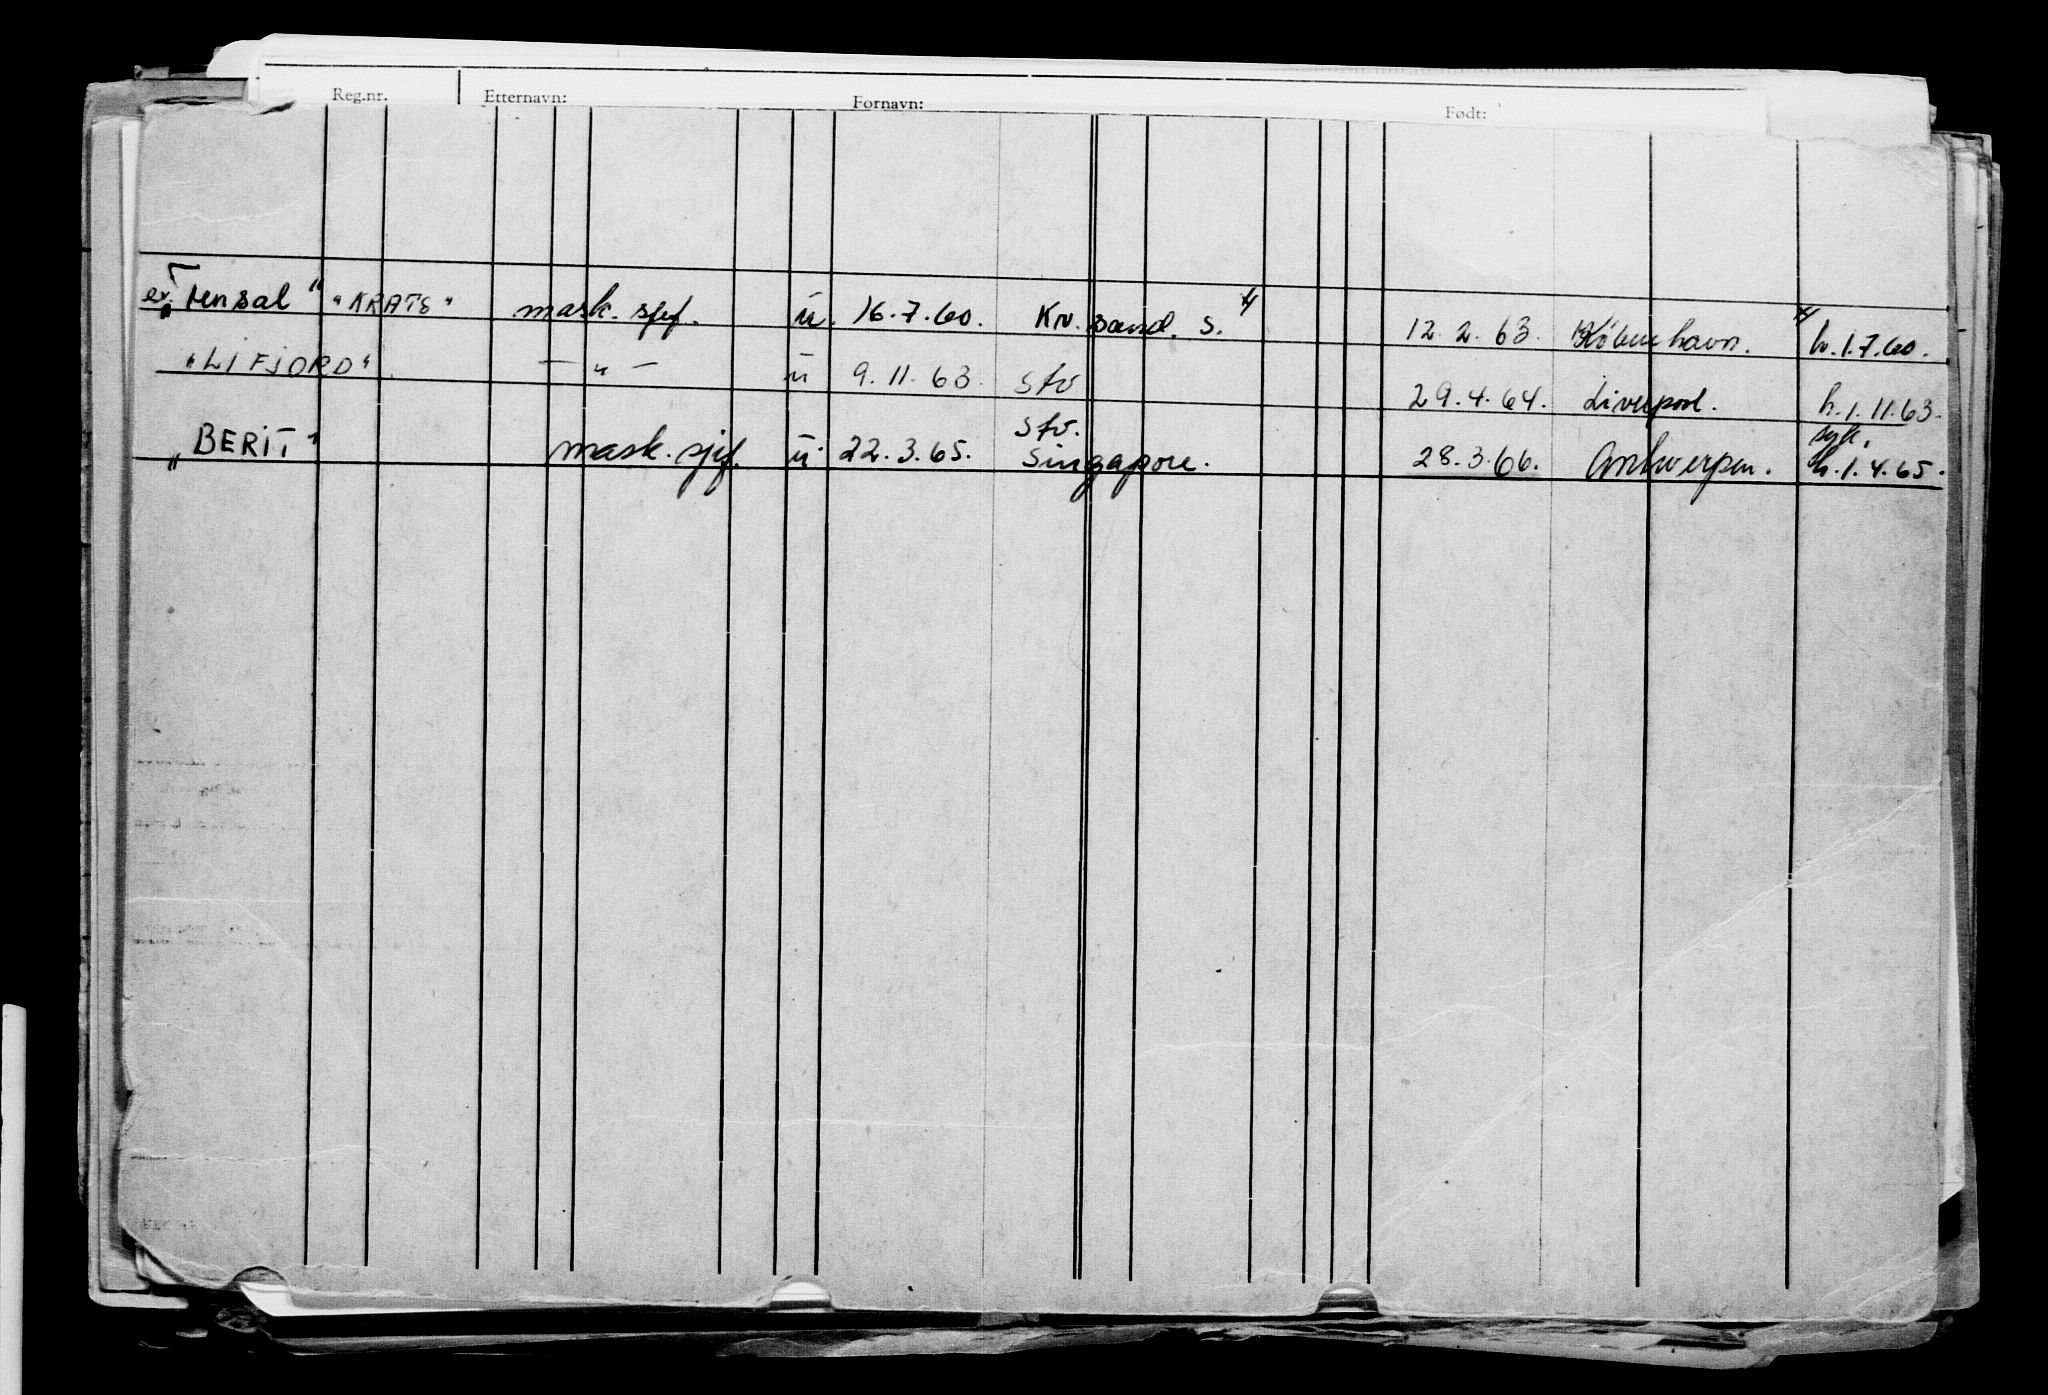 Reg.nr. Etternavn: Fornavn: Født:
ex. "Tensal" "KRATE" mask. sjef. u. 16.7.60. Kr. sand. S. 12.2.63. København. h.1.7.60.
"LIFJORD" — " — u 9.11.63. Stv 29.4.64. Liverpool. h.1.11.63.
Stv. syk.
"BERIT" mask. sjef. u. 22.3.65. Singapore. 28.3.66. Antwerpen. h.1.4.65.